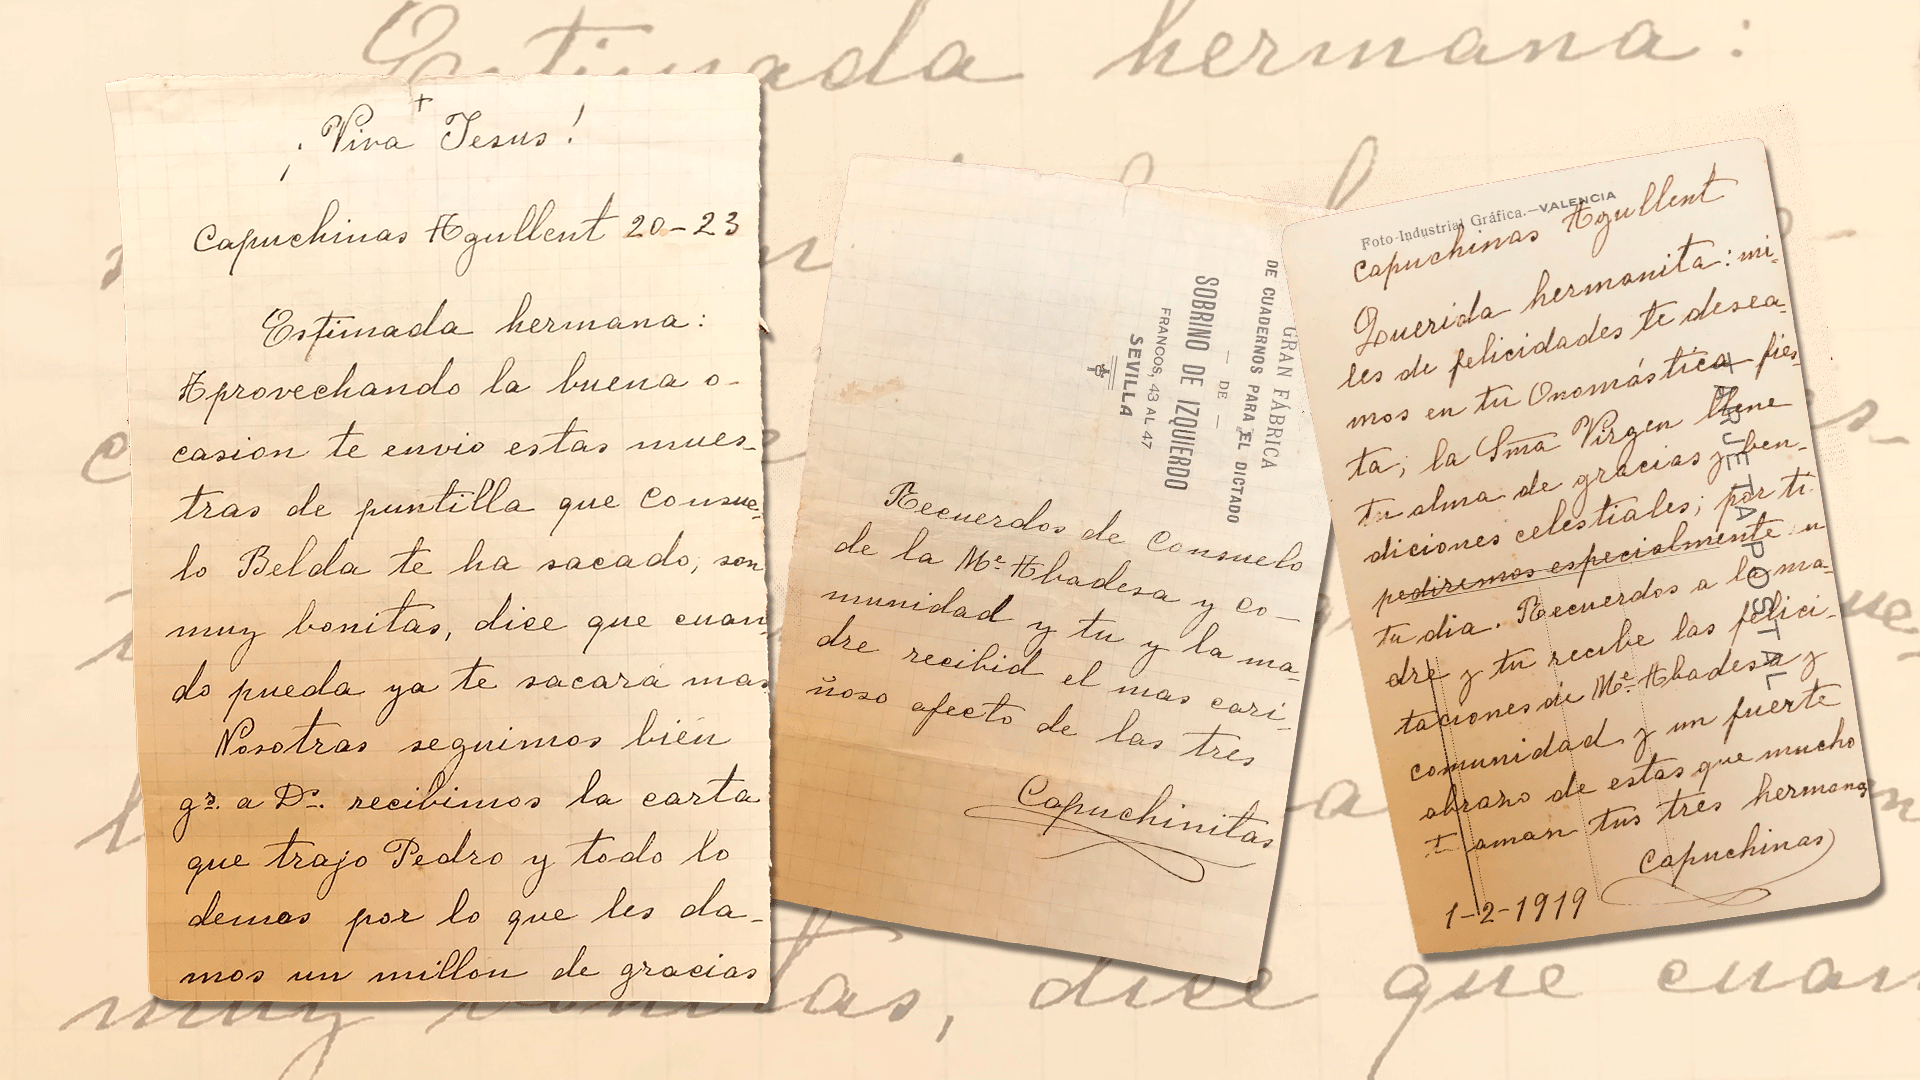 Estimada hermana:
†
¡Viva Jesus!
Capuchinas Agullent 20-23
Estimada hermana:
Aprovechando la buena o-
casion te envio estas mues-
tras de puntilla que Consue-
lo Belda te ha sacado, son
muy bonitas, dice que cuan-
do pueda ya te sacará mas.
Nosotras seguimos bién
gs. a Ds. recibimos la carta
que trajo Pedro y todo lo
demas por lo que les da-
mos un millon de gracias
GRAN FÁBRICA
DE CUADERNOS PARA EL DICTADO
— DE —
SOBRINO DE IZQUIERDO
FRANCOS, 43 AL 47
SEVILLA
Recuerdos de Consuelo
de la Me. Abadesa y co-
munidad y tu y la ma-
dre recibid el mas cari-
ñoso afecto de las tres
Capuchinitas
Foto-Industrial Gráfica.—VALENCIA
TARJETA POSTAL
Capuchinas Agullent
Querida hermanita: mi-
les de felicidades te desea-
mos en tu Onomástica fies-
ta; la Sma Virgen llene
tu alma de gracias y ben-
diciones celestiales; por ti
pediremos especialmente en
tu dia. Recuerdos a la ma-
dre y tu recibe las felici-
taciones de Me. Abadesa y
comunidad y un fuerte
abrazo de estas que mucho
te aman tus tres hermanas
Capuchinas
1-2-1919
muy bonitas, dice que cuan